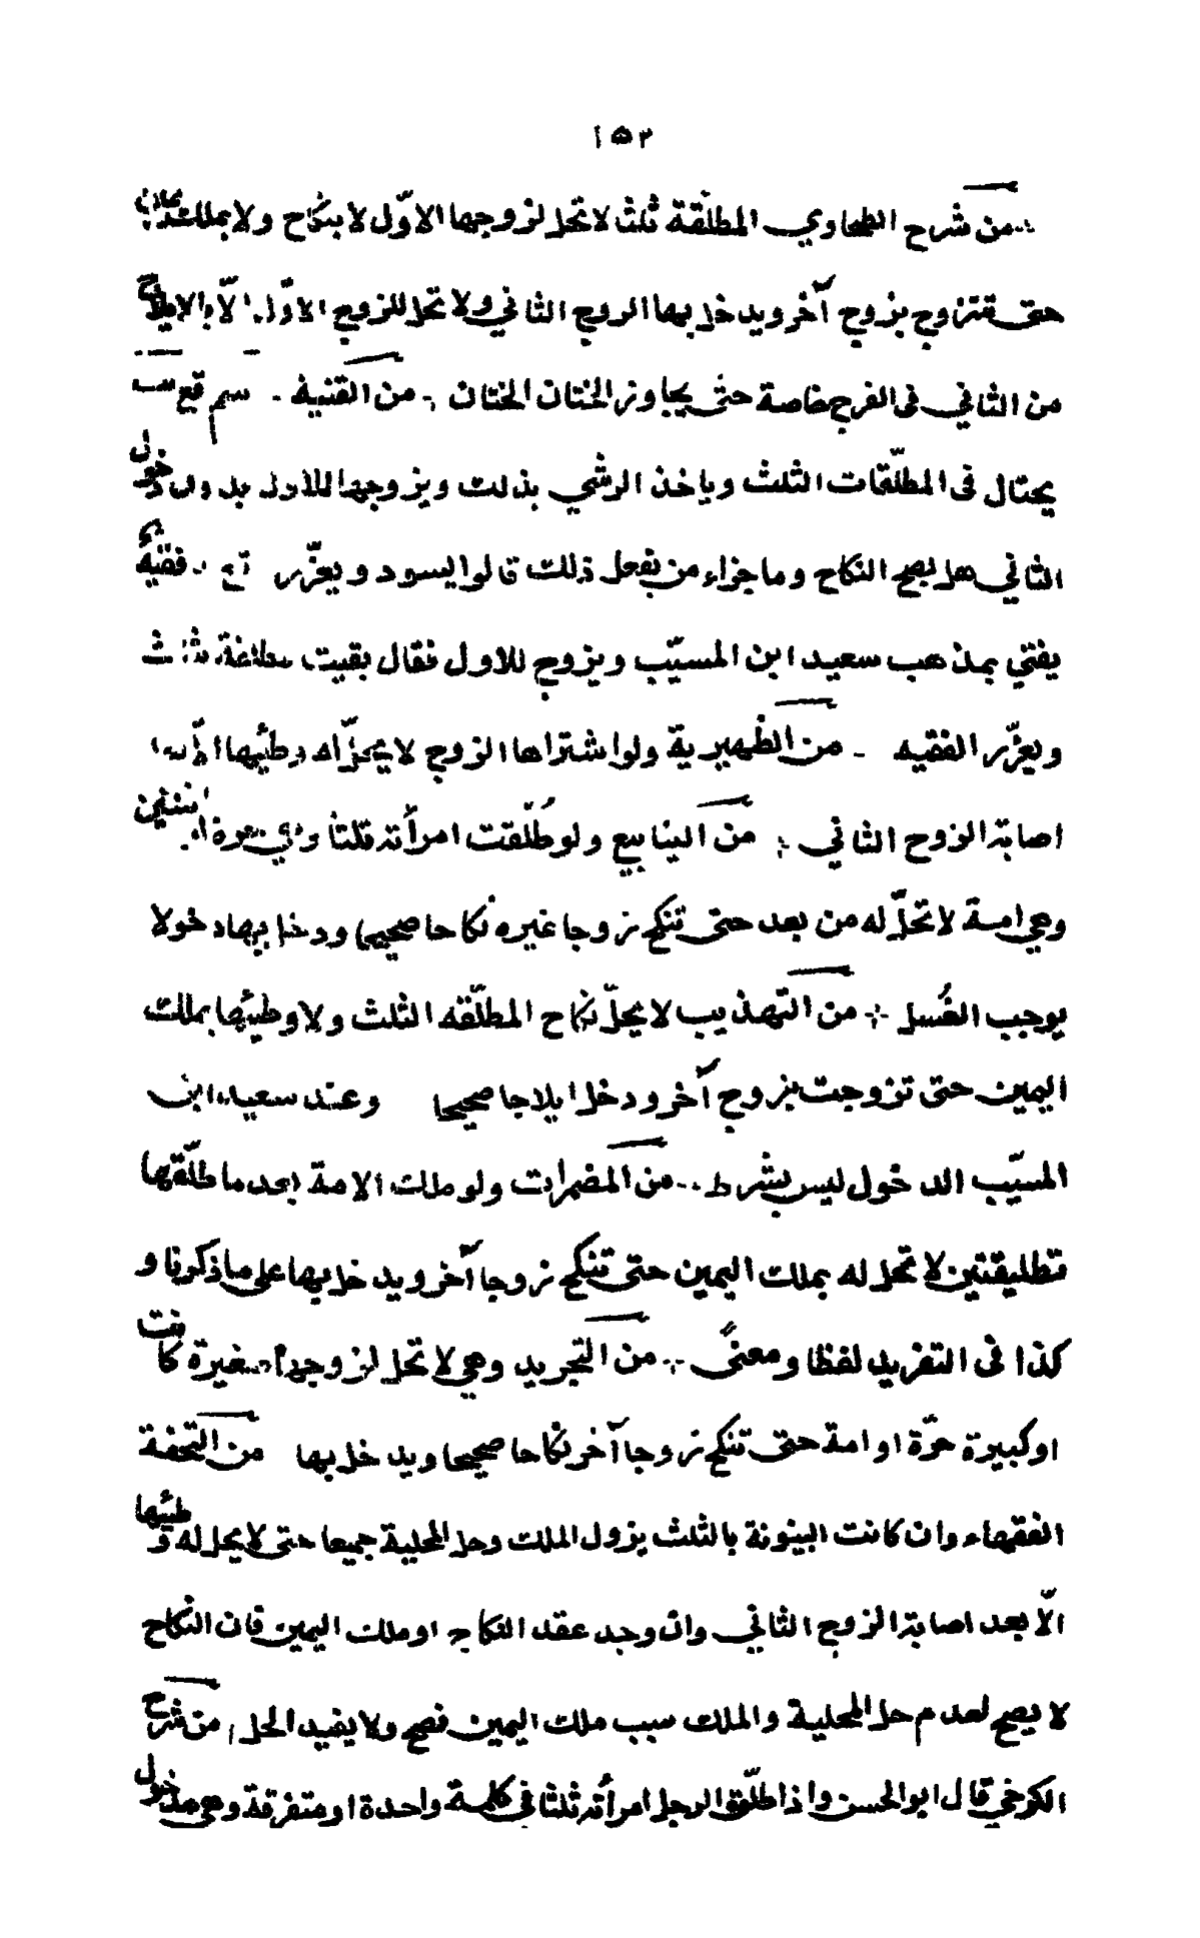 ١٥٣
من شرح الطحاوي المطلّقة ثلثا لا تحل لزوجها الاوّل لا بنكاح ولا بملك
حتى تتزاوج بزوج آخر ويدخل بها الزوج الثاني ولا تحل للزوج الاوّل الّا بالايلاج
من الثاني فى الفرج خاصة حتّى يجاوز الختان الختان من القنية سم قع
يحتال فى المطلّقات الثلث وياخذ الرشي بذلك ويزوجها للاول بدون دخول
الثاني هل يصح النكاح وما جزاء من يفعل ذلك قالوا يسود ويعزّر فقيه
يفتي بمذهب سعيد ابن المسيّب ويزوج للاول فقال بقيت مطلقة ثلث
ويعزّر الفقيه من الظهيرية ولو اشتراها الزوج لا يحلّ له وطئها الّا
اصابة الزوج الثاني من الينابيع ولو طُلّقت امرأته ثلثا وهي حرة او اثنتين
وهي امة لا تحلّ له من بعد حتى تنكح زوجا غيره نكاحا صحيحا ودخل بها دخولا
يوجب الغُسل من التهذيب لا يحلّ نكاح المطلّقه الثلث ولا وطيئها بملك
اليمين حتى تزوجت بزوج آخر ودخل ايلاجا صحيحا وعند سعيد ابن
المسيّب الدخول ليس بشرط من المضمرات ولو ملك الامة بعد ما طلّقها
تطليقتين لا تحل له بملك اليمين حتى تنكح زوجا آخر ويدخل بها على ما ذكرنا و
كذا فى التفريد لفظا ومعنًى من التجريد وهي لا تحل لزوجها صغيرة كانت
او كبيرة حرّة او امة حتى تنكح زوجا آخر نكاحا صحيحا ويدخل بها من التحفة
الفقهاء وان كانت البينونة بالثلث يزول الملك وحل المحلية جميعا حتى لا يحل له وطيئها
الّا بعد اصابة الزوج الثاني وان وجد عقد النكاح او ملك اليمين فان النكاح
لا يصح لعدم حل المحلية والملك سبب ملك اليمين فصح ولا يفيد الحل من شرح
الكرخي قال ابو الحسن واذا طلّق الرجل امرأته ثلثا في كلمة واحدة او متفرقة وهي مدخول